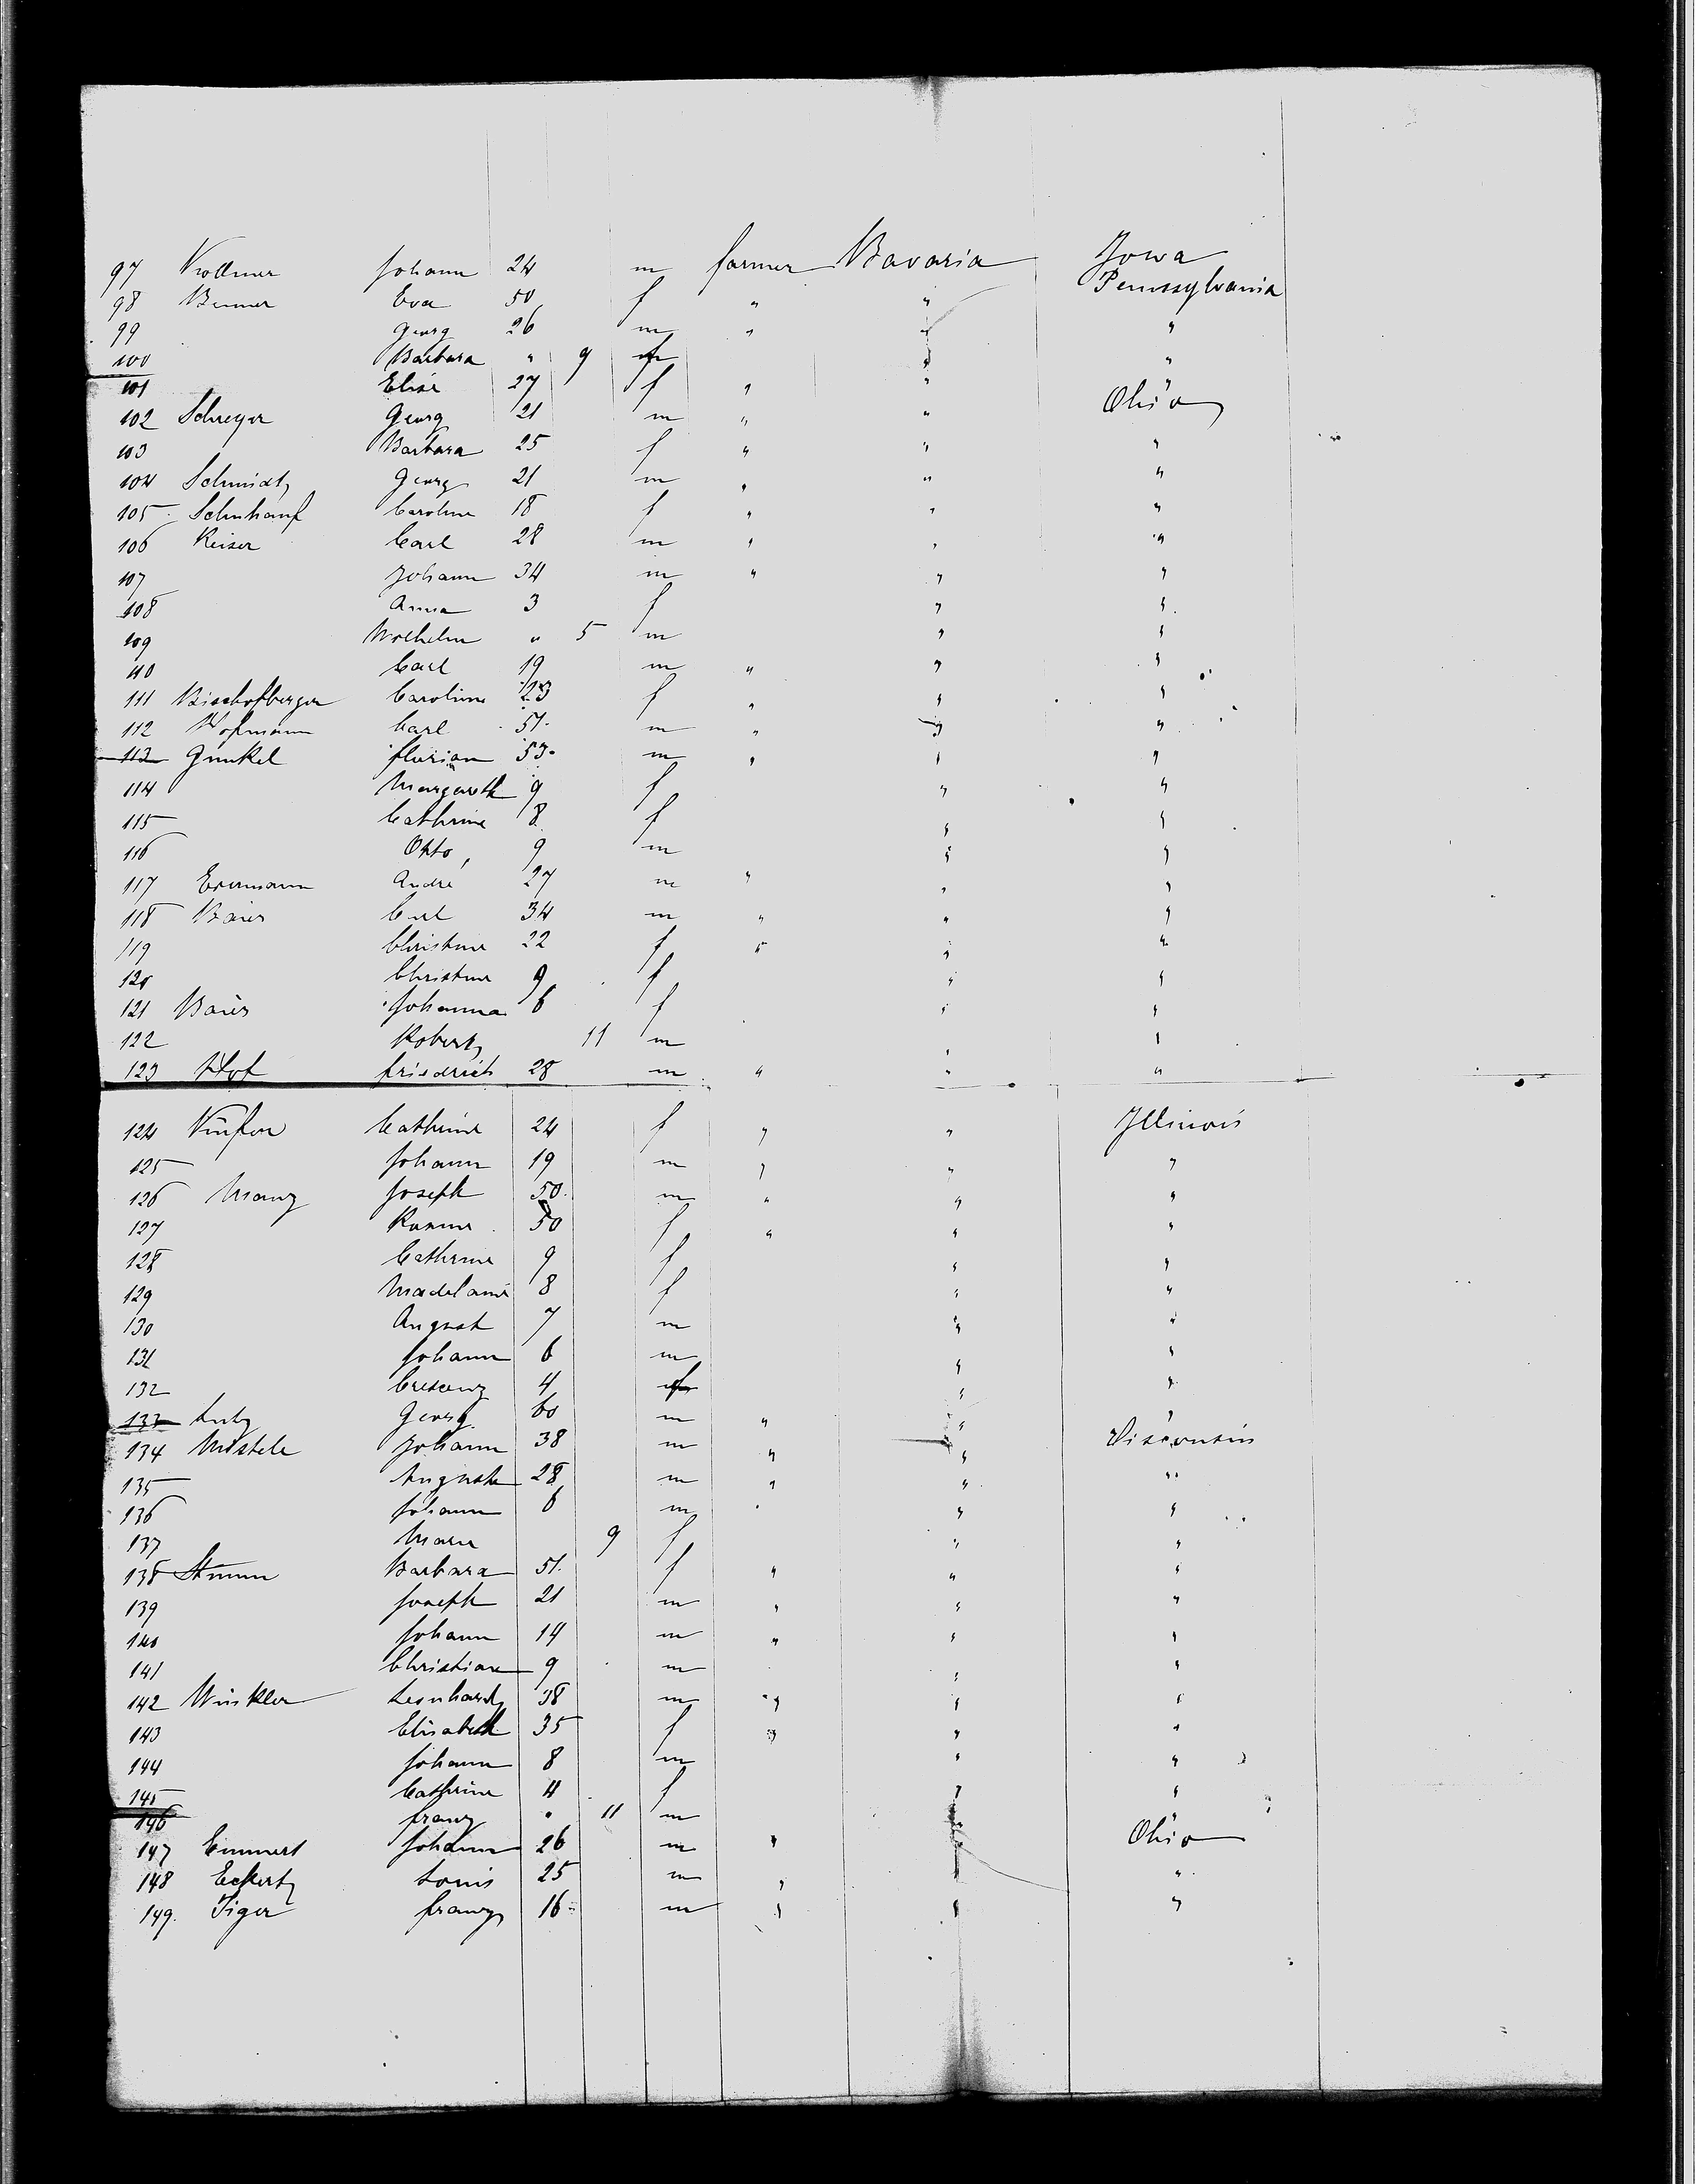 97 Vrollmer Johann 24 m farmer Bavaria Jowa
98 Benner Eva 50 f " " Pennssylvania
99 Georg 26 m " " "
100 Barbara " 9 f " "
101 Elise 27 f " " "
102 Schreyer Georg 21 m " " Ohio
103 Barbara 25 f " " "
104 Schmidt Georg 21 m " " "
105 Schuhauf Caroline 18 f " " "
106 Keiser Carl 28 m " " "
107 Johann 34 m " " "
108 Anna 3 f " "
109 Wilhelm " 5 m " "
110 Carl 19 m " " "
111 Bischofberger Caroline 23 f " " "
112 Hofmann Carl 51 m " " "
113 Gunkel florian 53 m " " "
114 Margareth 9 f " "
115 Cathrine 8 f " "
116 Otto 9 m " "
117 Evermann Andre 27 m " " "
118 Baier Carl 34 m " " "
119 Christine 22 f " " "
120 Christine 9 f " "
121 Baier Johanna 6 f " "
122 Robert 11 m " "
123 Hof friedrich 28 m " " "
124 Cathrine 24 f " " Jllinois
125 Johann 19 m " " "
126 Manz Joseph 50 m " " "
127 50 f " " "
128 Cathrine 9 f " "
129 Madelaine 8 f " "
130 August 7 m " "
131 Johann 6 m " "
132 Crescenz 4 f " "
133 Lutz Georg 60 m " " "
134 Mistele Johann 38 m " " Visconsin
135 Auguste 28 m " " "
136 Johann 6 m " " "
137 Marie 9 f " "
138 Stumm Barbara 51 f " " "
139 Joseph 21 m " " "
140 Johann 14 m " " "
141 Christian 9 m " "
142 Winkler Leonhard 38 m " " "
143 Elisabeth 35 f " " "
144 Johann 8 m " "
145 Cathrine 4 f " "
146 franz " 11 m " "
147 Emmert Johann 26 m " " Ohio
148 Eckert Louis 25 m " " "
149. Tiger franz 16 m " " "